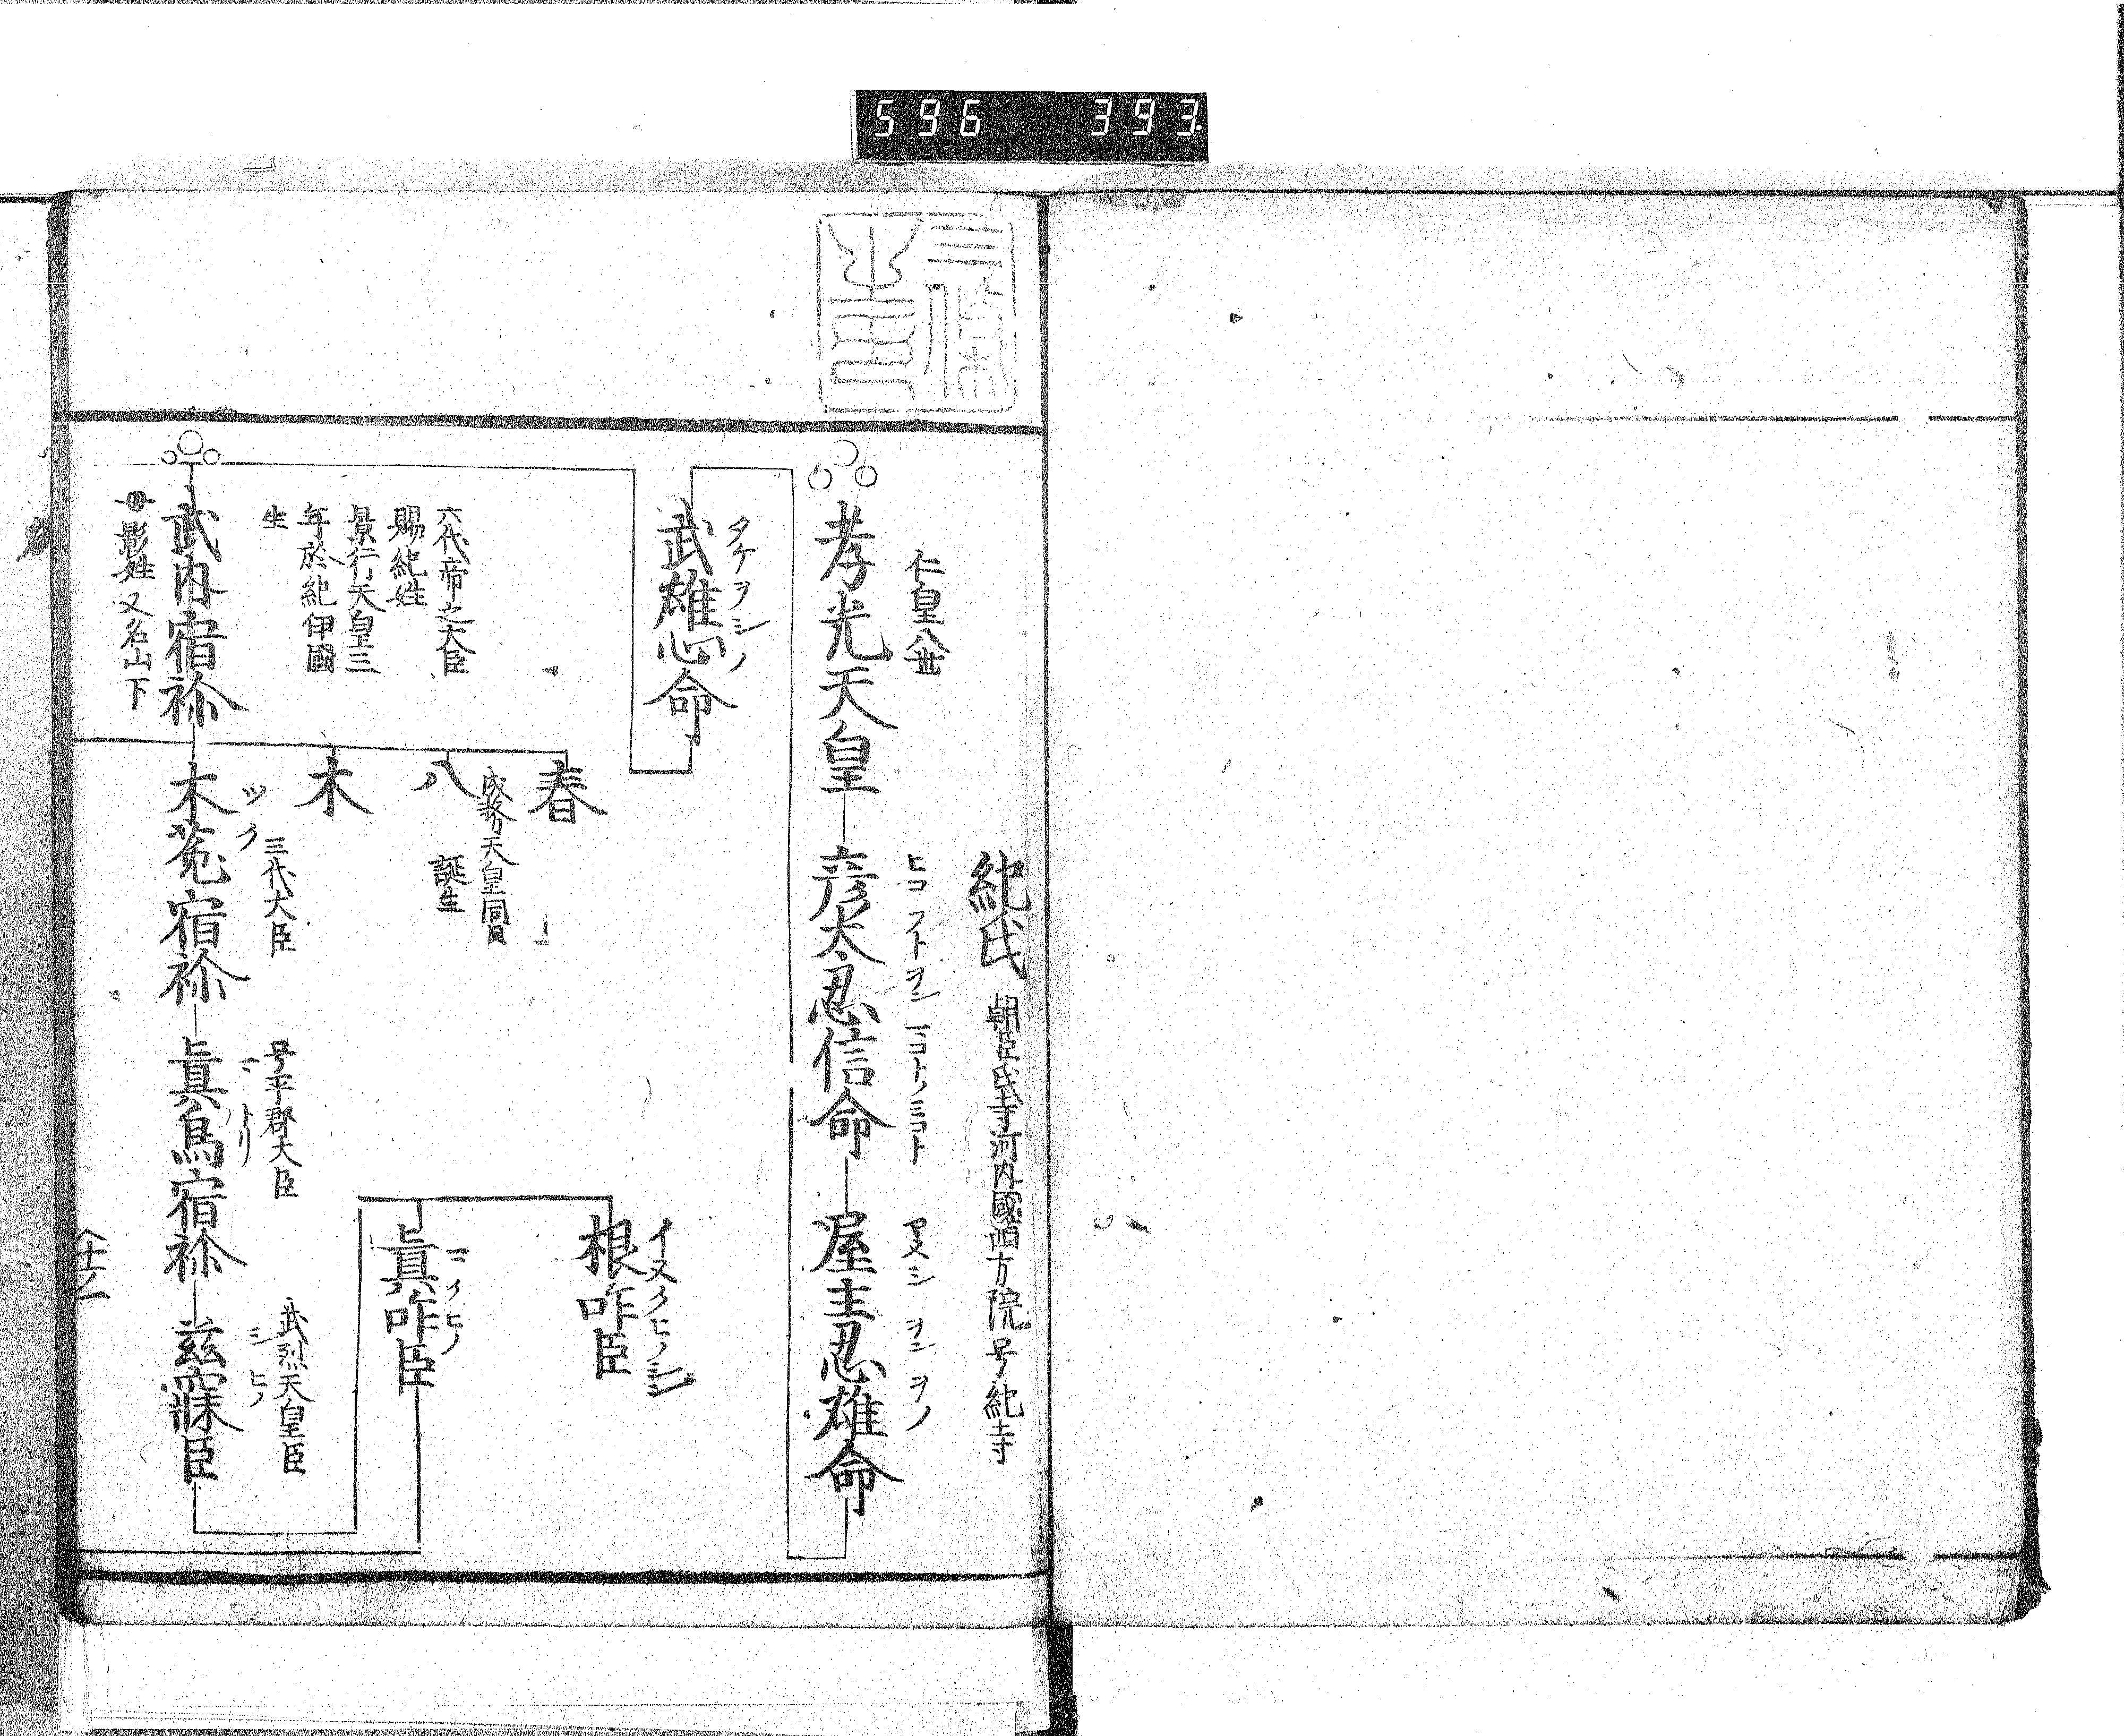 596 393
紀氏 朝臣氏寺河内國西方院号紀寺
仁皇八世
孝光天皇
ヒコフトヲシ
彦太忍信命
屋主忍雄命
タケヲシノ
武雄心命
六代帝之大臣
賜紀姓
景行天皇三
年於紀伊國
生
武内宿祢
影姓又名山下
春
成務天皇同
誕生
八
木
ツク
三代大臣
木菟宿祢
号平郡大臣
トリ
眞鳥宿祢
武烈天皇臣
臣
イヌクヒノ
根咋臣
マクヒノ
眞咋臣